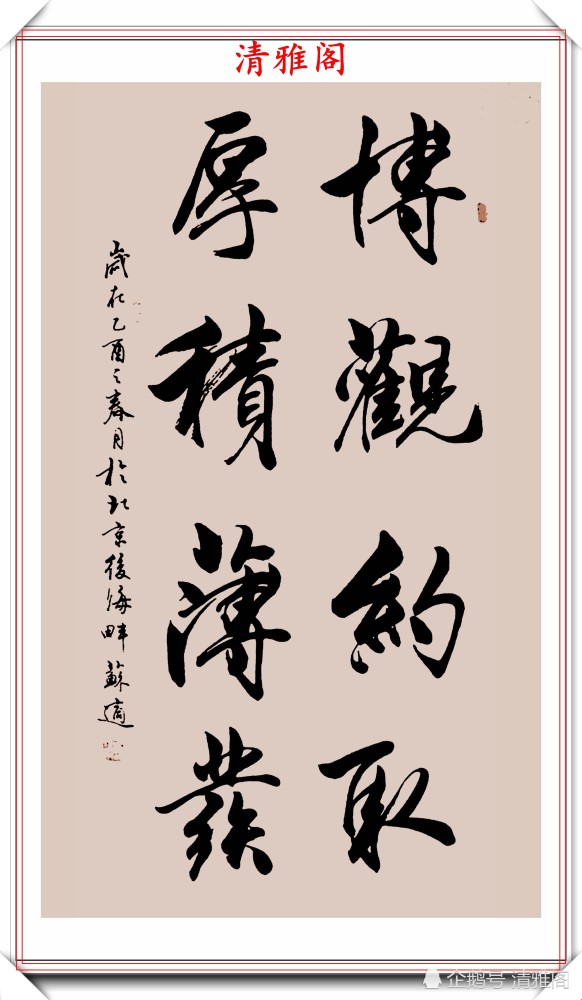 清雅阁
博觀約取
厚積薄發
歲在乙酉之春月於北京後海畔蘇適
企鹅号 清雅阁